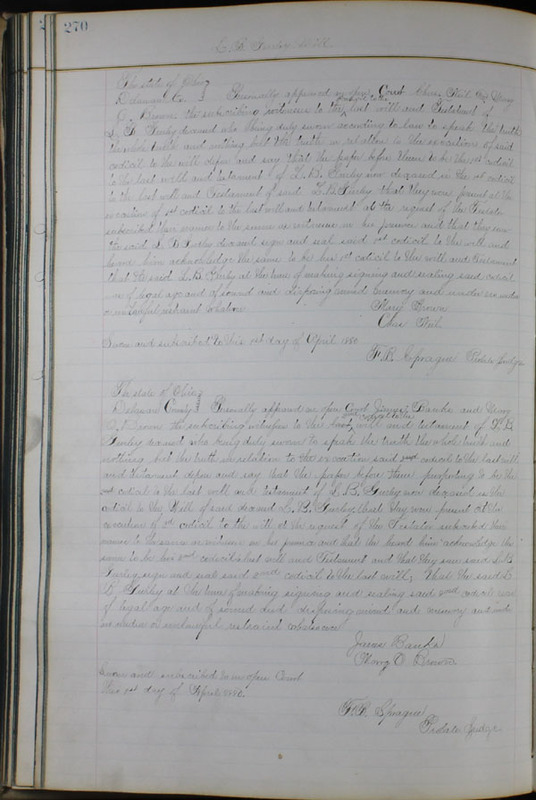 270
L. B. Gurley Will
The State of Ohio
Delaware Co. Personally appeared in open Court Chas. Neil and Harry
O. Brown the subscribing witnesses to the last will and Testament of
L. B. Gurley deceased who being duly sworn according to law to speak the truth
the whole truth and nothing but the truth in relation to the execution of said
codicil to the will depose and say that the paper before them to be the 1st codicil
to the last will and testament of L. B. Gurley now deceased in the 1st codicil
to the last will and Testament of said L. B. Gurley that they were present at the
execution of 1st codicil to the last will and testament at the request of the Testator
subscribed their names to the same as witnesses in his presence and that they saw
the said L. B. Gurley deceased sign and seal said 1st codicil to the will and
heard him acknowledge the same to be his 1st codicil to the will and Testament
that the said L. B. Gurley at the time of making signing and sealing said codicil
was of legal age and of sound and disposing mind memory and under no undue
or unlawful restraint whatsoever
Harry Brown
Chas Neil
Sworn and subscribed to this 1st day of April 1880
F. B. Sprague Probate Judge
The State of Ohio
Delaware County Personally appeared in open Court James Banks and Harry
O. Brown the subscribing witnesses to the 2nd codicil to the last will and testament of L. B.
Gurley deceased who being duly sworn to speak the truth the whole truth and
nothing but the truth in relation to the execution said 2nd codicil to the last will
and testament depose and say that the paper before them purporting to be the
2nd codicil to the last will and testament of L. B. Gurley now deceased is the
codicil to the Will of said deceased L. B. Gurley, that they were present at the
execution of 2nd codicil to the will at the request of the Testator subscribed their
names to the same as witnesses in his presence and that the heard him acknowledge the
same to be his 2nd codicil last will and Testament and that they saw said L. B.
Gurley sign and seal said 2nd codicil to the last will, that the said L.
B. Gurley at the time of making signing and sealing said 2nd codicil was
of legal age and of sound and disposing mind and memory and under
no undue or unlawful restraint whatsoever
James Banks
Harry O Brown
Sworn and subscribed to in open Court
this 1st day of April 1880.
F. B. Sprague
Probate Judge